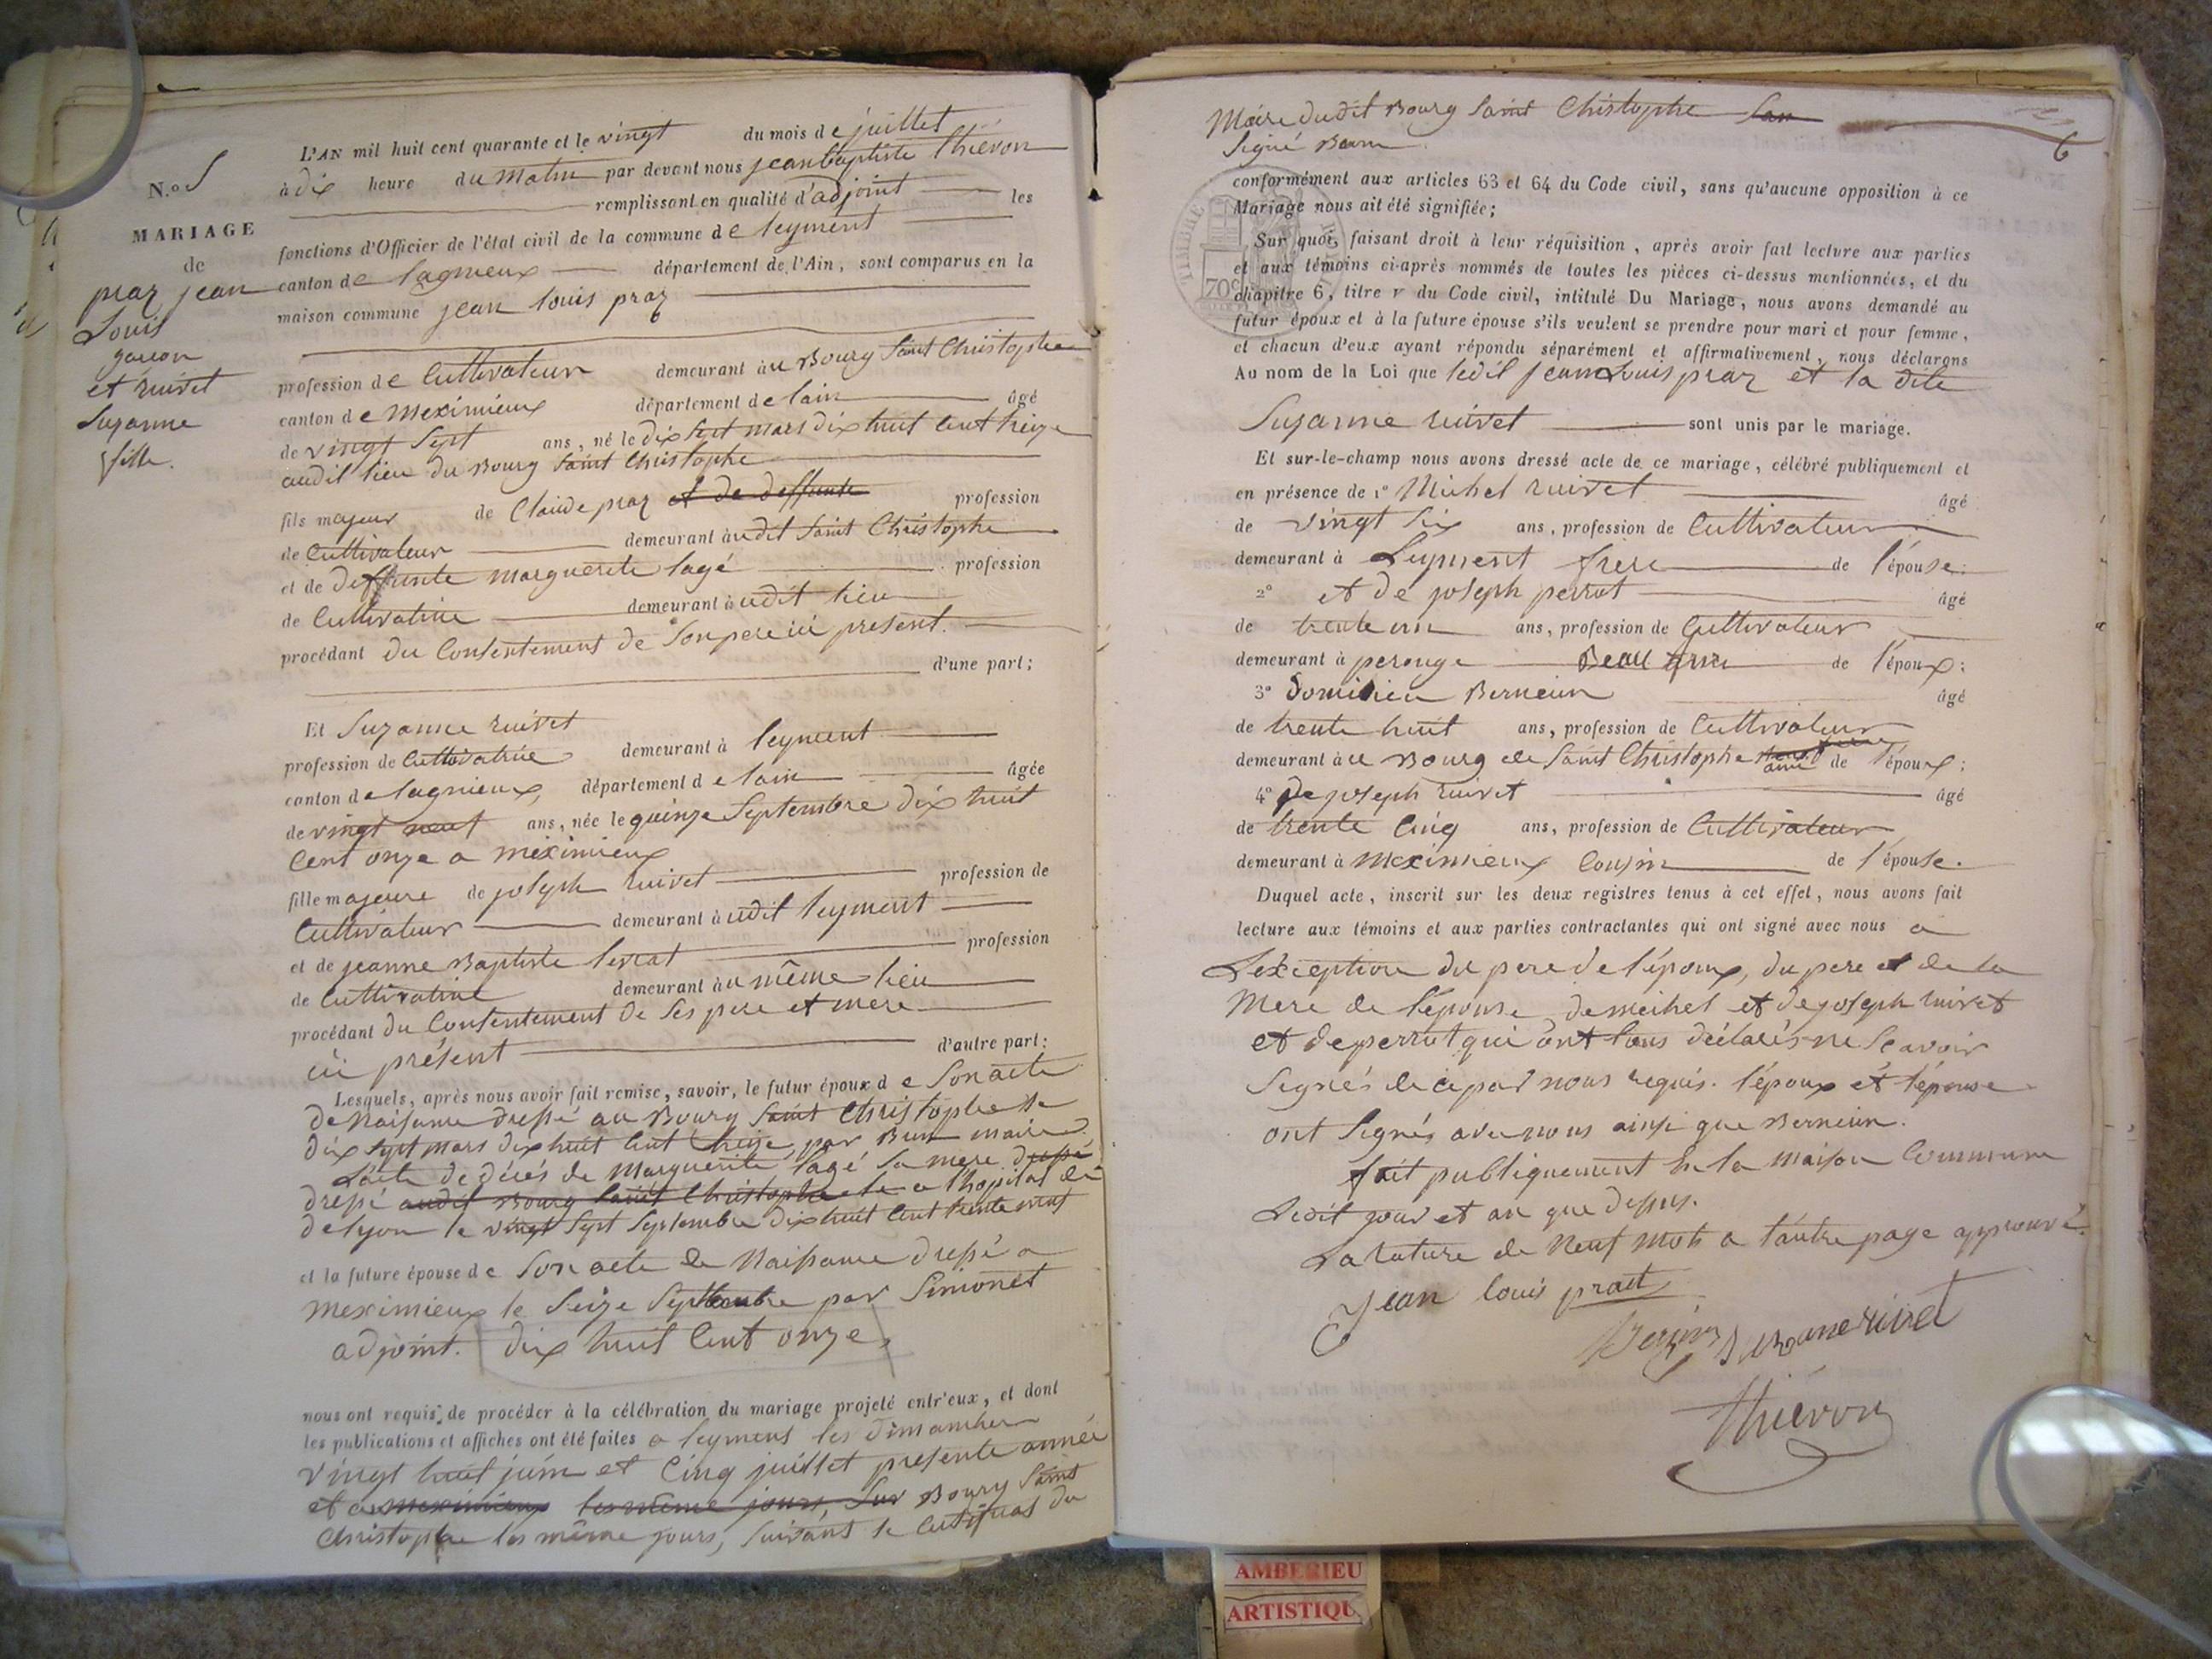 N.o 5
MARIAGE
de
praz jean
Louis
garcon
et ruivet
Suzanne
fille.
L'AN mil huit cent quarante et le vingt du mois de juillet
à dix heure du matin par devant nous jean baptiste thiévon
remplissant en qualité d'adjoint les
fonctions d'Officier de l'état civil de la commune de leyment
canton de lagnieux département de l'Ain, sont comparus en la
maison commune jean louis praz
profession de Cultivateur demeurant àu Bourg saint Christophe
canton de meximieux département de lain âgé
de vingt sept ans, né le dix sept mars dix huit cent treize
audit lieu du Bourg saint Christophe
fils majeur de Claude praz et de deffunte profession
de Cultivateur demeurant àudit saint Christophe
et de deffunte marguerite lagé profession
de Cultivatrice demeurant àudit lieu
procédant du Consentement de son pere ici présent.
d'une part;
Et Suzanne ruivet
profession de Cultivatrice demeurant à leyment
canton de lagnieux, département de lain âgée
de vingt neuf ans, née le quinze Septembre dix huit
Cent onze a meximieux
fille majeure de joseph ruivet profession de
Cultivateur demeurant àudit leyment
et de jeanne Baptiste profession
de Cultivatrice demeurant àu même lieu
procédant du Consentement de ses pere et mere
ici présent d'autre part:
Lesquels, après nous avoir fait remise, savoir, le futur époux de Son acte
de Naissance dressé au Bourg saint Christophe le
dix sept mars dix huit cent treize, par maire
L'acte de décés de Marguerite lagé sa mere dressé
dressé audit Bourg saint Christophe le a l'hopital de
de lyon le vingt sept septembre dix huit cent trente neuf
et la future épouse de Son acte de Naissance dressé a
meximieux le Seize Septembre par Simonet
adjoint. dix huit Cent onze,
nous ont requis de procéder à la célébration du mariage projeté entr'eux, et dont
les publications et affiches ont été faites a leyment les dimanches
vingt huit juin et Cinq juillet presente année
et a meximieux les même jours, Sur Bourg saint
Christophe les même jours, suivant le Certificat du
6
Maire dudit Bourg saint Christophe
Signé
conformément aux articles 63 et 64 du Code civil, sans qu'aucune opposition à ce
Mariage nous ait été signifiée;
TIMBRE
70c
Sur quoi, faisant droit à leur réquisition, après avoir fait lecture aux parties
et aux témoins ci-après nommés de toutes les pièces ci-dessus mentionnées, et du
chapitre 6, titre V du Code civil, intitulé Du Mariage, nous avons demandé au
futur époux et à la future épouse s'ils veulent se prendre pour mari et pour femme,
et chacun d'eux ayant répondu séparément et affirmativement, nous déclarons
Au nom de la Loi que ledit jean Louis praz et la dite
Suzanne ruivet sont unis par le mariage.
Et sur-le-champ nous avons dressé acte de ce mariage, célébré publiquement et
en présence de 1º Michel ruivet âgé
de vingt six ans, profession de Cultivateur
demeurant à Leyment frere de l'épouse:
2º et de joseph perrot âgé
de trente un ans, profession de Cultivateur
demeurant à perouge Beau frere de l'époux:
3º Dominien Bernein âgé
de trente huit ans, profession de Cultivateur
demeurant àu Bourg de Saint Christophe ami de l'époux:
4º De joseph ruivet âgé
de trente Cinq ans, profession de Cultivateur
demeurant à Meximieux Cousin de l'épouse.
Duquel acte, inscrit sur les deux registres tenus à cet effet, nous avons fait
lecture aux témoins et aux parties contractantes qui ont signé avec nous a
L'exception du pere de l'époux, du pere et de la
Mere de l'épouse de meihel et de joseph ruivet
et de perrot qui ont tous déclarés ne Scavoir
Signés de ce par nous requis. l'époux et l'épouse
ont Signés avec nous ainsi que Bernein.
fait publiquement En la maison Commune
Ledit jour et an que dessus.
La rature de Neuf mots a l'autre page approuvé.
Jean louis prait
Suzanne ruivet
Thiévon
AMBERIEU
ARTISTIQU